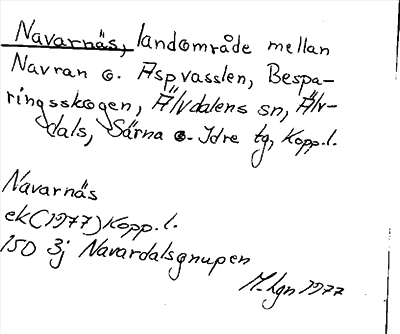 Navarnäs, landområde mellan
Navran o. Aspvasslen, Bespa-
ringsskogen, Älvdalens sn, Älv-
dals, Särna o. Idre tg, Kopp.l.
Navarnäs
ek(1977) Kopp.l.
150 3j Navardalsgnupen
M.hgn 1977